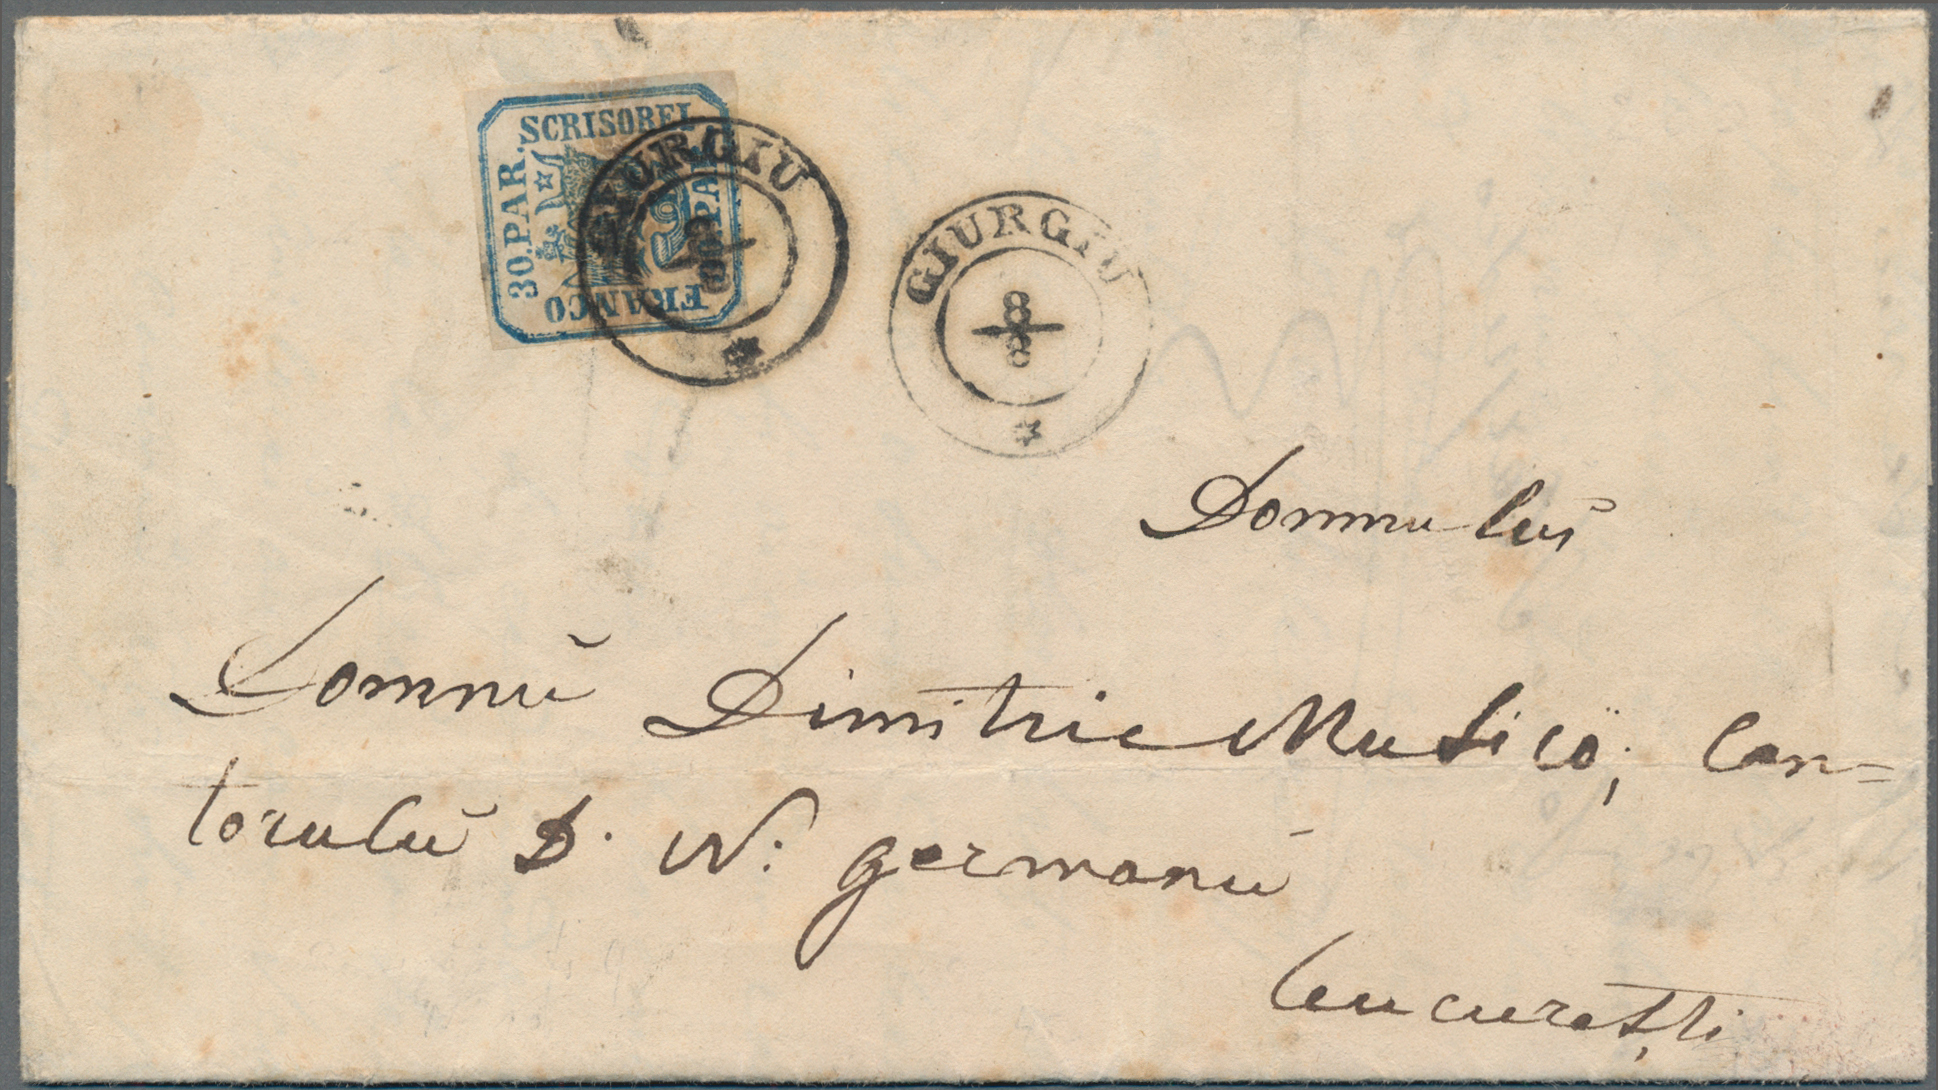 SCRISOREI
30.PAR.
FRANCO
30.PAR
GIURGIU
8
8
GIURGIU
8
8
Domnului
Domnŭ Dimitrie Musicŏ, Can=
torulŭ D. N: germanŭ
bucurești